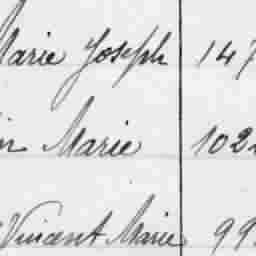 Marie Joseph 147
Marie 102
Vincent Marie 99